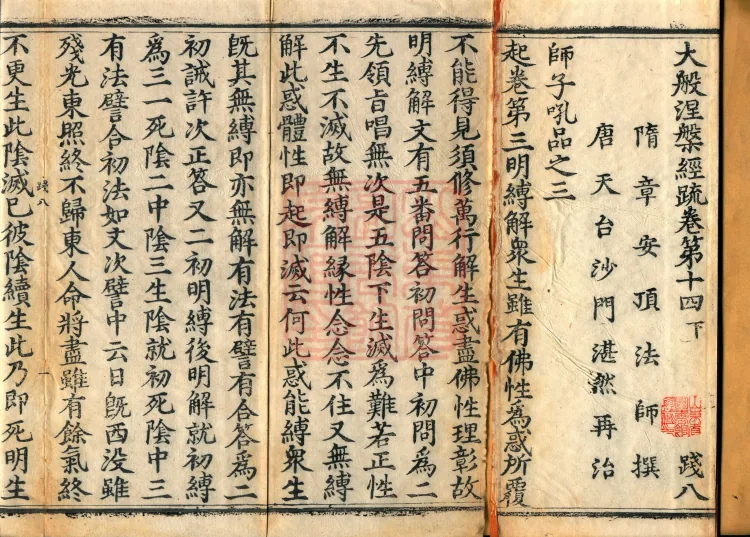 大般涅槃經疏卷第十四下 踐八
隋章安頂法師撰
唐天台沙門湛然再治
師子吼品之三
起卷第三明縛解衆生雖有佛性為惑所覆
不能得見須修萬行解生惑盡佛性理彰故
明縛解文有五番問答初問答中初問為二
先領旨唱無次是五陰下生滅為難若正性
不生不滅故無縛解緣性念念不住又無縛
解此惑體性即起即滅云何此惑能縛衆生
旣其無縛即亦無解有法有譬有合答為二
初誡許次正答又二初明縛後明解就初縛
為三一死陰二中陰三生陰就初死陰中三
有法譬合初法如文次譬中云日旣西没雖
踐八 一
殘光東照終不歸東人命將盡雖有餘氣終
不更生此陰滅已彼陰續生此乃即死明生